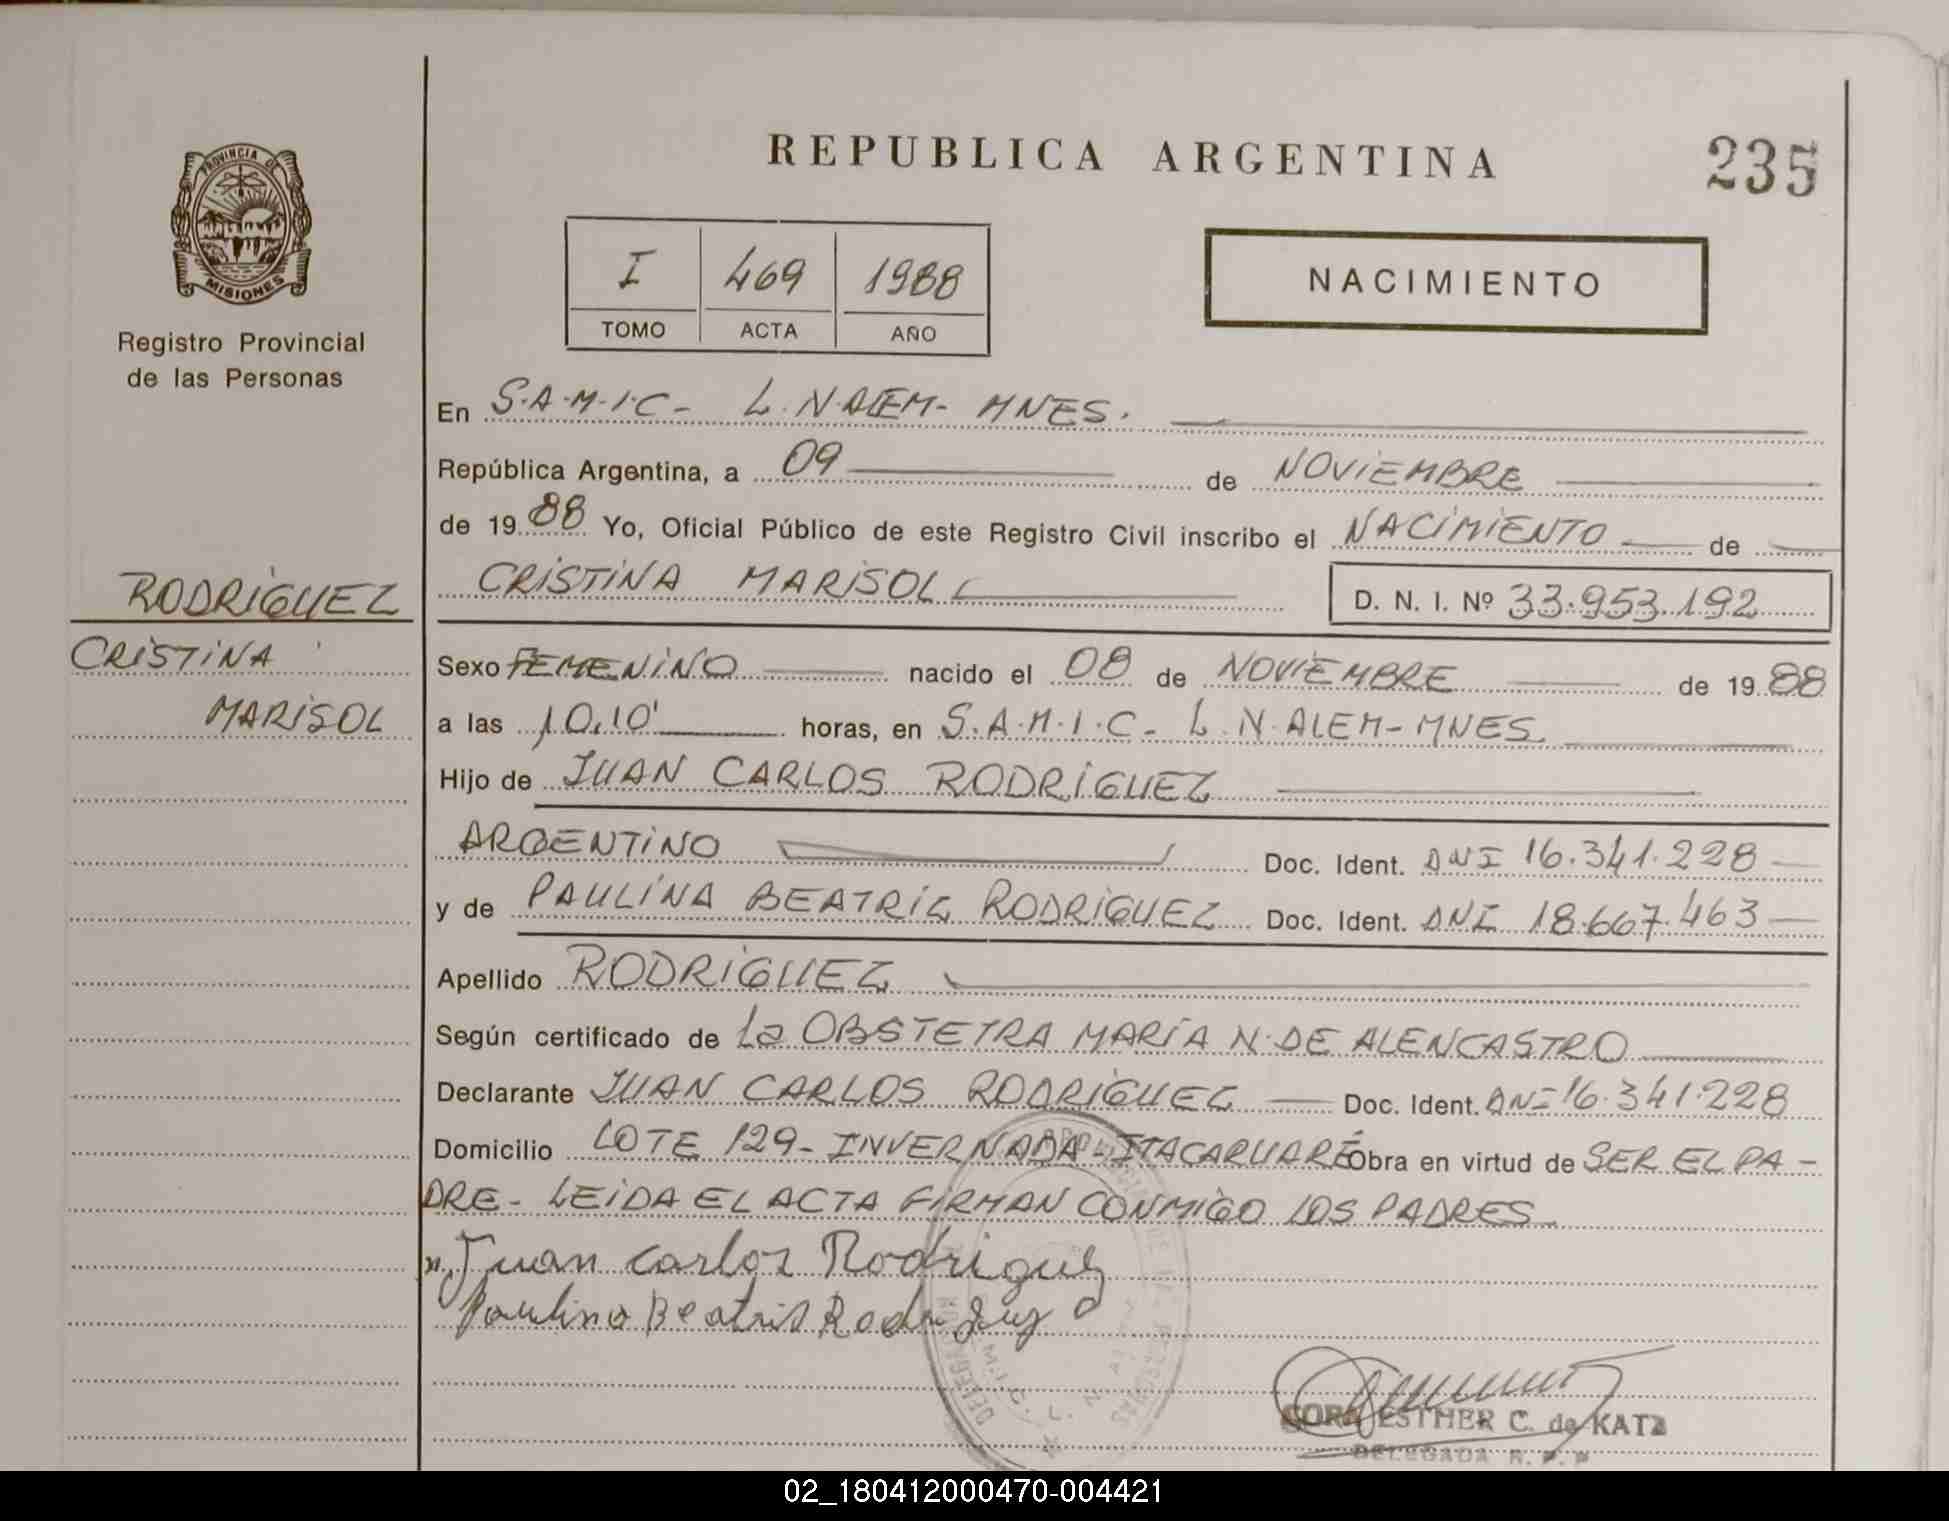 REPUBLICA ARGENTINA
235
PROVINCIA DE
MISIONES
Registro Provincial
de las Personas
I 469 1988
TOMO ACTA AÑO
NACIMIENTO
En S.A.M.I.C- L.N.ALEM- MNES.
República Argentina, a 09 de NOVIEMBRE
de 1988 Yo, Oficial Público de este Registro Civil inscribo el NACIMIENTO de
CRISTINA MARISOL D. N. I. Nº 33.953.192
RODRIGUEZ
CRISTINA
MARISOL
Sexo FEMENINO nacido el 08 de NOVIEMBRE de 1988
a las 10,10' horas, en S.A.M.I.C- L.N.ALEM-MNES.
Hijo de JUAN CARLOS RODRIGUEZ
ARGENTINO Doc. Ident. DNI 16.341.228
y de PAULINA BEATRIZ RODRIGUEZ Doc. Ident. DNI 18.667.463
Apellido RODRIGUEZ
Según certificado de La OBSTETRA MARIA N. DE ALENCASTRO
Declarante JUAN CARLOS RODRIGUEZ Doc. Ident. DNI 16.341.228
Domicilio LOTE 129-INVERNADA-ITACARUARÉ Obra en virtud de SER EL PA-
DRE- LEIDA EL ACTA FIRMAN CONMIGO LOS PADRES
Juan Carlos Rodriguez
Paulina Beatris Rodriguez
CORA ESTHER C. de KATZ
DELEGADA R. P. P
02_180412000470-004421